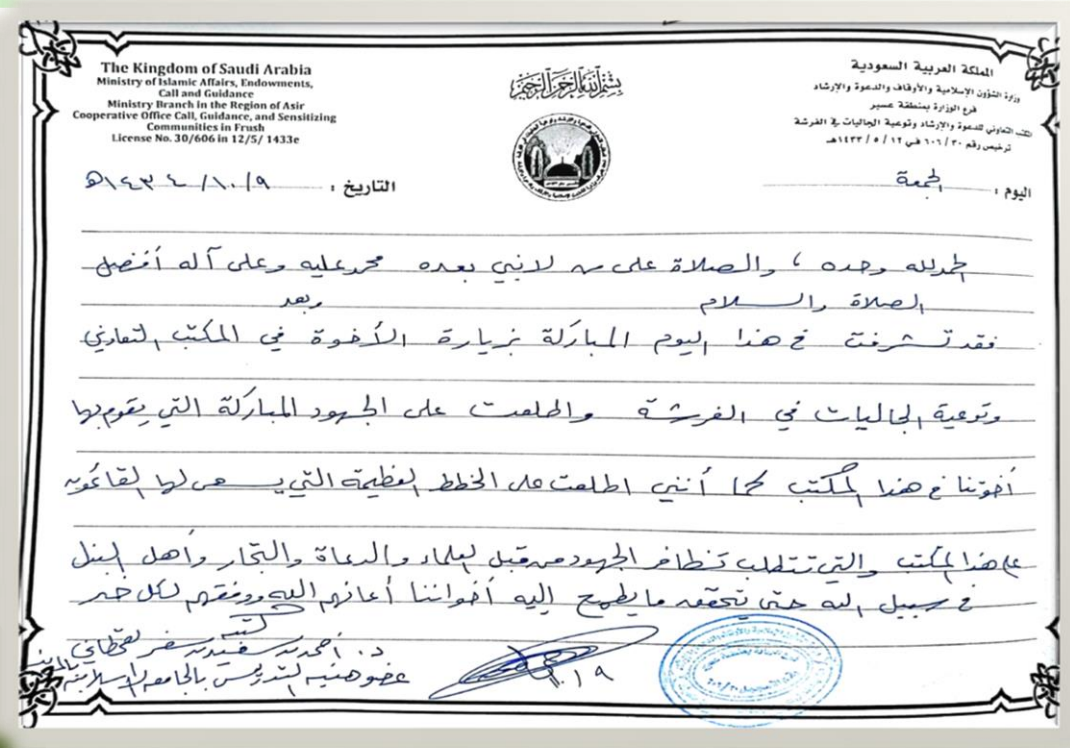 The Kingdom of Saudi Arabia
Ministry of Islamic Affairs, Endowments,
Call and Guidance
Ministry Branch in the Region of Asir
Cooperative Office Call, Guidance, and Sensitizing
Communities in Frush
License No. 30/606 in 12/5/ 1433e
بسم الله الرحمن الرحيم
المملكة العربية السعودية
وزارة الشؤون الإسلامية والأوقاف والدعوة والإرشاد
فرع الوزارة بمنطقة عسير
المكتب التعاوني للدعوة والإرشاد وتوعية الجاليات في الفرشة
ترخيص رقم ٦٠٦/٣٠ في ١٤٣٣/٥/١٢هـ
اليوم : الجمعة
التاريخ : ١٤٣٤/١٠/٩هـ
الحمد لله وحده ، والصلاة على من لا نبي بعده محمد عليه وعلى آله أفضل
الصلاة والسلام وبعد
فقد تشرفت في هذا اليوم المباركة بزيارة الأخوة في المكتب التعاوني
وتوعية الجاليات في الفرشة واطلعت على الجهود المباركة التي يقوم بها
أخوتنا في هذا المكتب كما أنني اطلعت على الخطط العظيمة التي يسعى لها القائمون
على هذا المكتب والتي تتطلب تظافر الجهود من قبل العلماء والدعاة والتجار وأهل البذل
في سبيل الله حتى تحقق ما يطمح إليه أخواننا أعانهم الله ووفقهم لكل خير
كتبه
د. أحمد بن سفر القحطاني
عضو هيئة التدريس بالجامعة الإسلامية